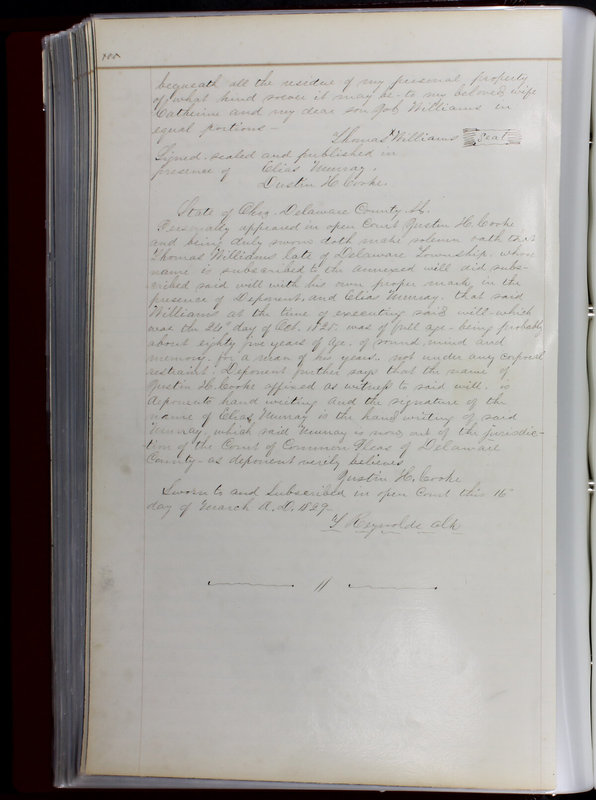 bequeath all the residue of my personal property
of what kind soever it may be to my beloved wife
Catherine and my dear son Job Williams in
equal portions —
Thomas Williams Seal
Signed sealed and published in
presence of Elias Murray.
Justin H. Cooke.
State of Ohio. Delaware County
Personally appeared in open Court Justin H. Cooke
and being duly sworn doth make solemn oath that
Thomas Williams late of Delaware Township, whose
name is subscribed to the annexed will did subs-
cribed said will with his own proper mark, in the
presence of Deponent, and Elias Murray. that said
Williams at the time of executing said will which
was the 24th day of Oct. 1825. was of full age - being probably
about eighty five years of age. of sound mind and
memory for a man of his years. not under any corporal
restraint. Deponent further says that the name of
Justin H. Cooke affixed as witness to said will. is
deponents hand writing and the signature of the
name of Elias Murray is the hand writing of said
Murray, which said Murray is now, out of the jurisdic-
tion of the Court of Common Pleas of Delaware
County - as deponent verily believes
Justin H. Cooke
Sworn to and Subscribed in open Court this 16
day of March A.D. 1829
T Reynolds clk